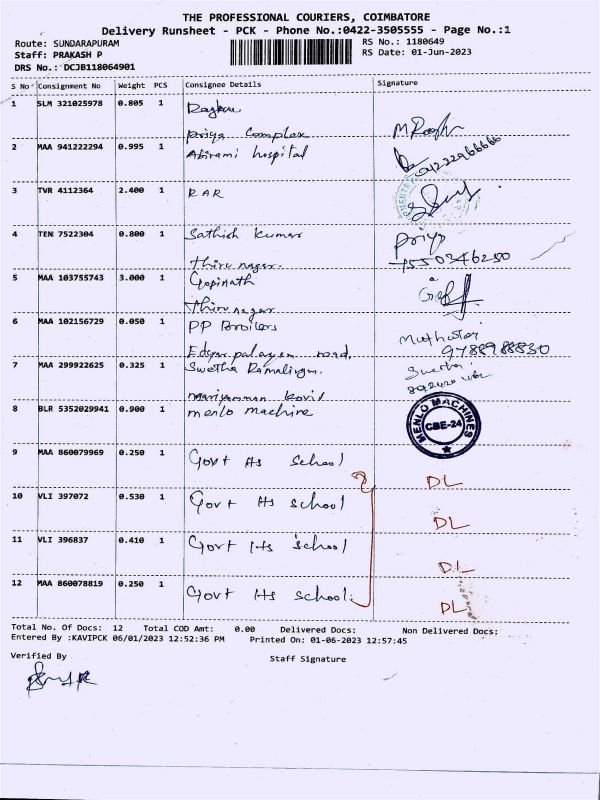 THE PROFESSIONAL COURIERS, COIMBATORE
Delivery Runsheet - PCK - Phone No.:0422-3505555 - Page No.:1
Route: SUNDARAPURAM RS No.: 1180649
Staff: PRAKASH P RS Date: 01-Jun-2023
DRS No.: DCJB118064901
S No Consignment No Weight PCS Consignee Details Signature
1 SLM 321025978 0.805 1 Raghu
Priya Complex
2 MAA 941222294 0.995 1 Abirami hospital
3 TVR 4112364 2.400 1 RAR
4 TEN 7522304 0.800 1 Sathish Kumar Priya
Thiru nagar.
5 MAA 103755743 3.000 1 Gopinath
Thiru nagar
6 MAA 102156729 0.050 1 PP Broilers
road. 9788988530
7 MAA 299922625 0.325 1 Swetha Ramalingam
mariyamman kovil
8 BLR 5352029941 0.900 1 menlo machine MENLO MACHINES CBE-24
9 MAA 860079969 0.250 1 Govt Hs School DL
10 VLI 397072 0.530 1 Govt Hs school DL
11 VLI 396837 0.410 1 Govt Hs school DL
12 MAA 860078819 0.250 1 Govt Hs school. DL
Total No. Of Docs: 12 Total COD Amt: 0.00 Delivered Docs: Non Delivered Docs:
Entered By :KAVIPCK 06/01/2023 12:52:36 PM Printed On: 01-06-2023 12:57:45
Verified By Staff Signature